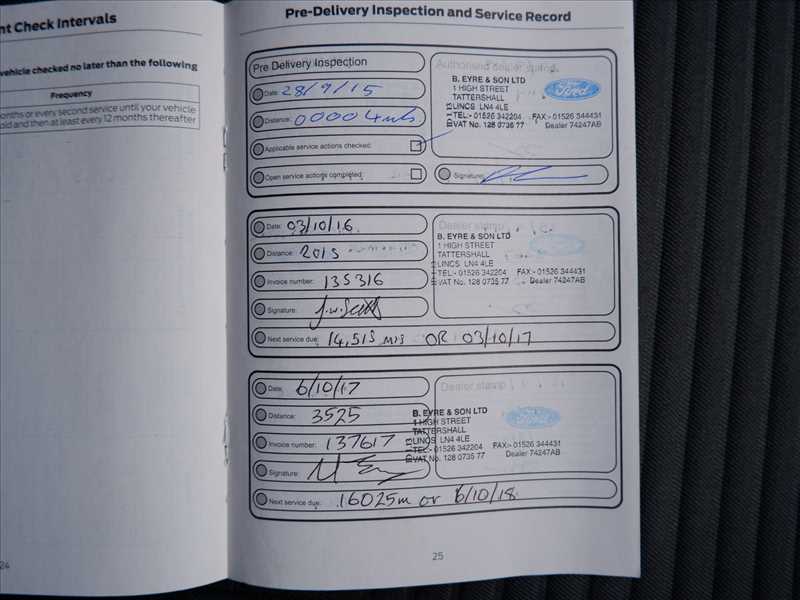 nt Check Intervals
vehicle checked no later than the following
Frequency
onths or every second service until your vehicle
old and then at least every 12 months thereafter
24
Pre-Delivery Inspection and Service Record
Pre Delivery Inspection
Authorised dealer stamp
Date: 28/9/15
Distance: 00004 mls
Applicable service actions checked:
Open service actions completed:
B. EYRE & SON LTD
1 HIGH STREET
TATTERSHALL
LINCS LN4 4LE
TEL:- 01526 342204 FAX:- 01526 344431
VAT No. 128 0735 77 Dealer 74247AB
Ford
Signature:
Date: 03/10/16
Distance: 2013
Invoice number: 135316
Signature:
Next service due: 14,513 mls OR 03/10/17
Dealer stamp
B. EYRE & SON LTD
1 HIGH STREET
TATTERSHALL
LINCS LN4 4LE
TEL:- 01526 342204 FAX:- 01526 344431
VAT No. 128 0735 77 Dealer 74247AB
Date: 6/10/17
Distance: 3525
Invoice number: 137617
Signature:
Next service due: 16025m or 6/10/18
Dealer stamp
B. EYRE & SON LTD
1 HIGH STREET
TATTERSHALL
LINCS LN4 4LE
TEL:- 01526 342204 FAX:- 01526 344431
VAT No. 128 0735 77 Dealer 74247AB
Ford
25